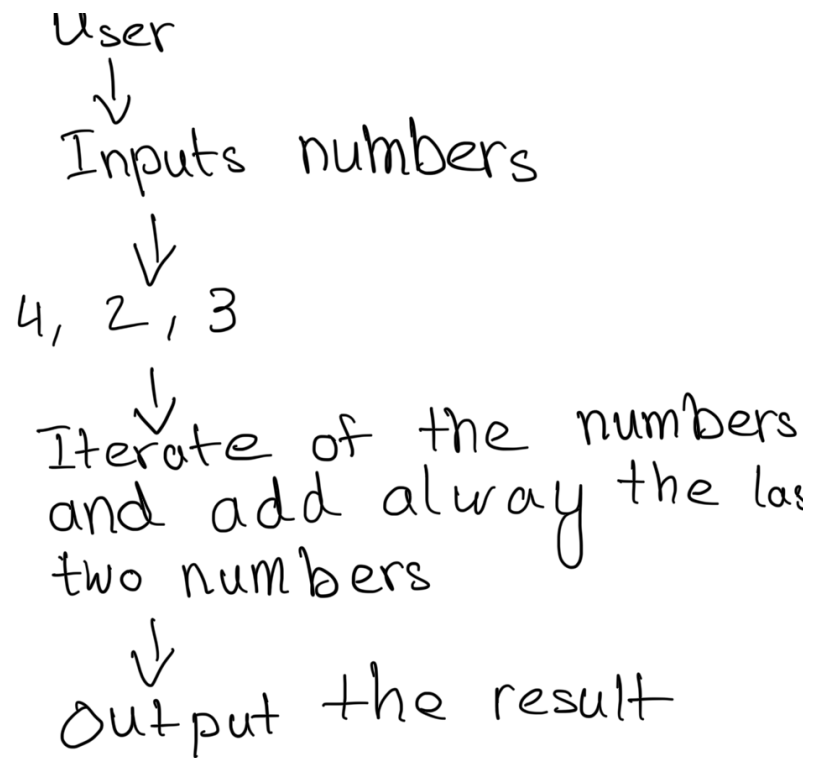 User
Inputs numbers
4, 2, 3
Iterate of the numbers
and add alway the las
two numbers
output the result